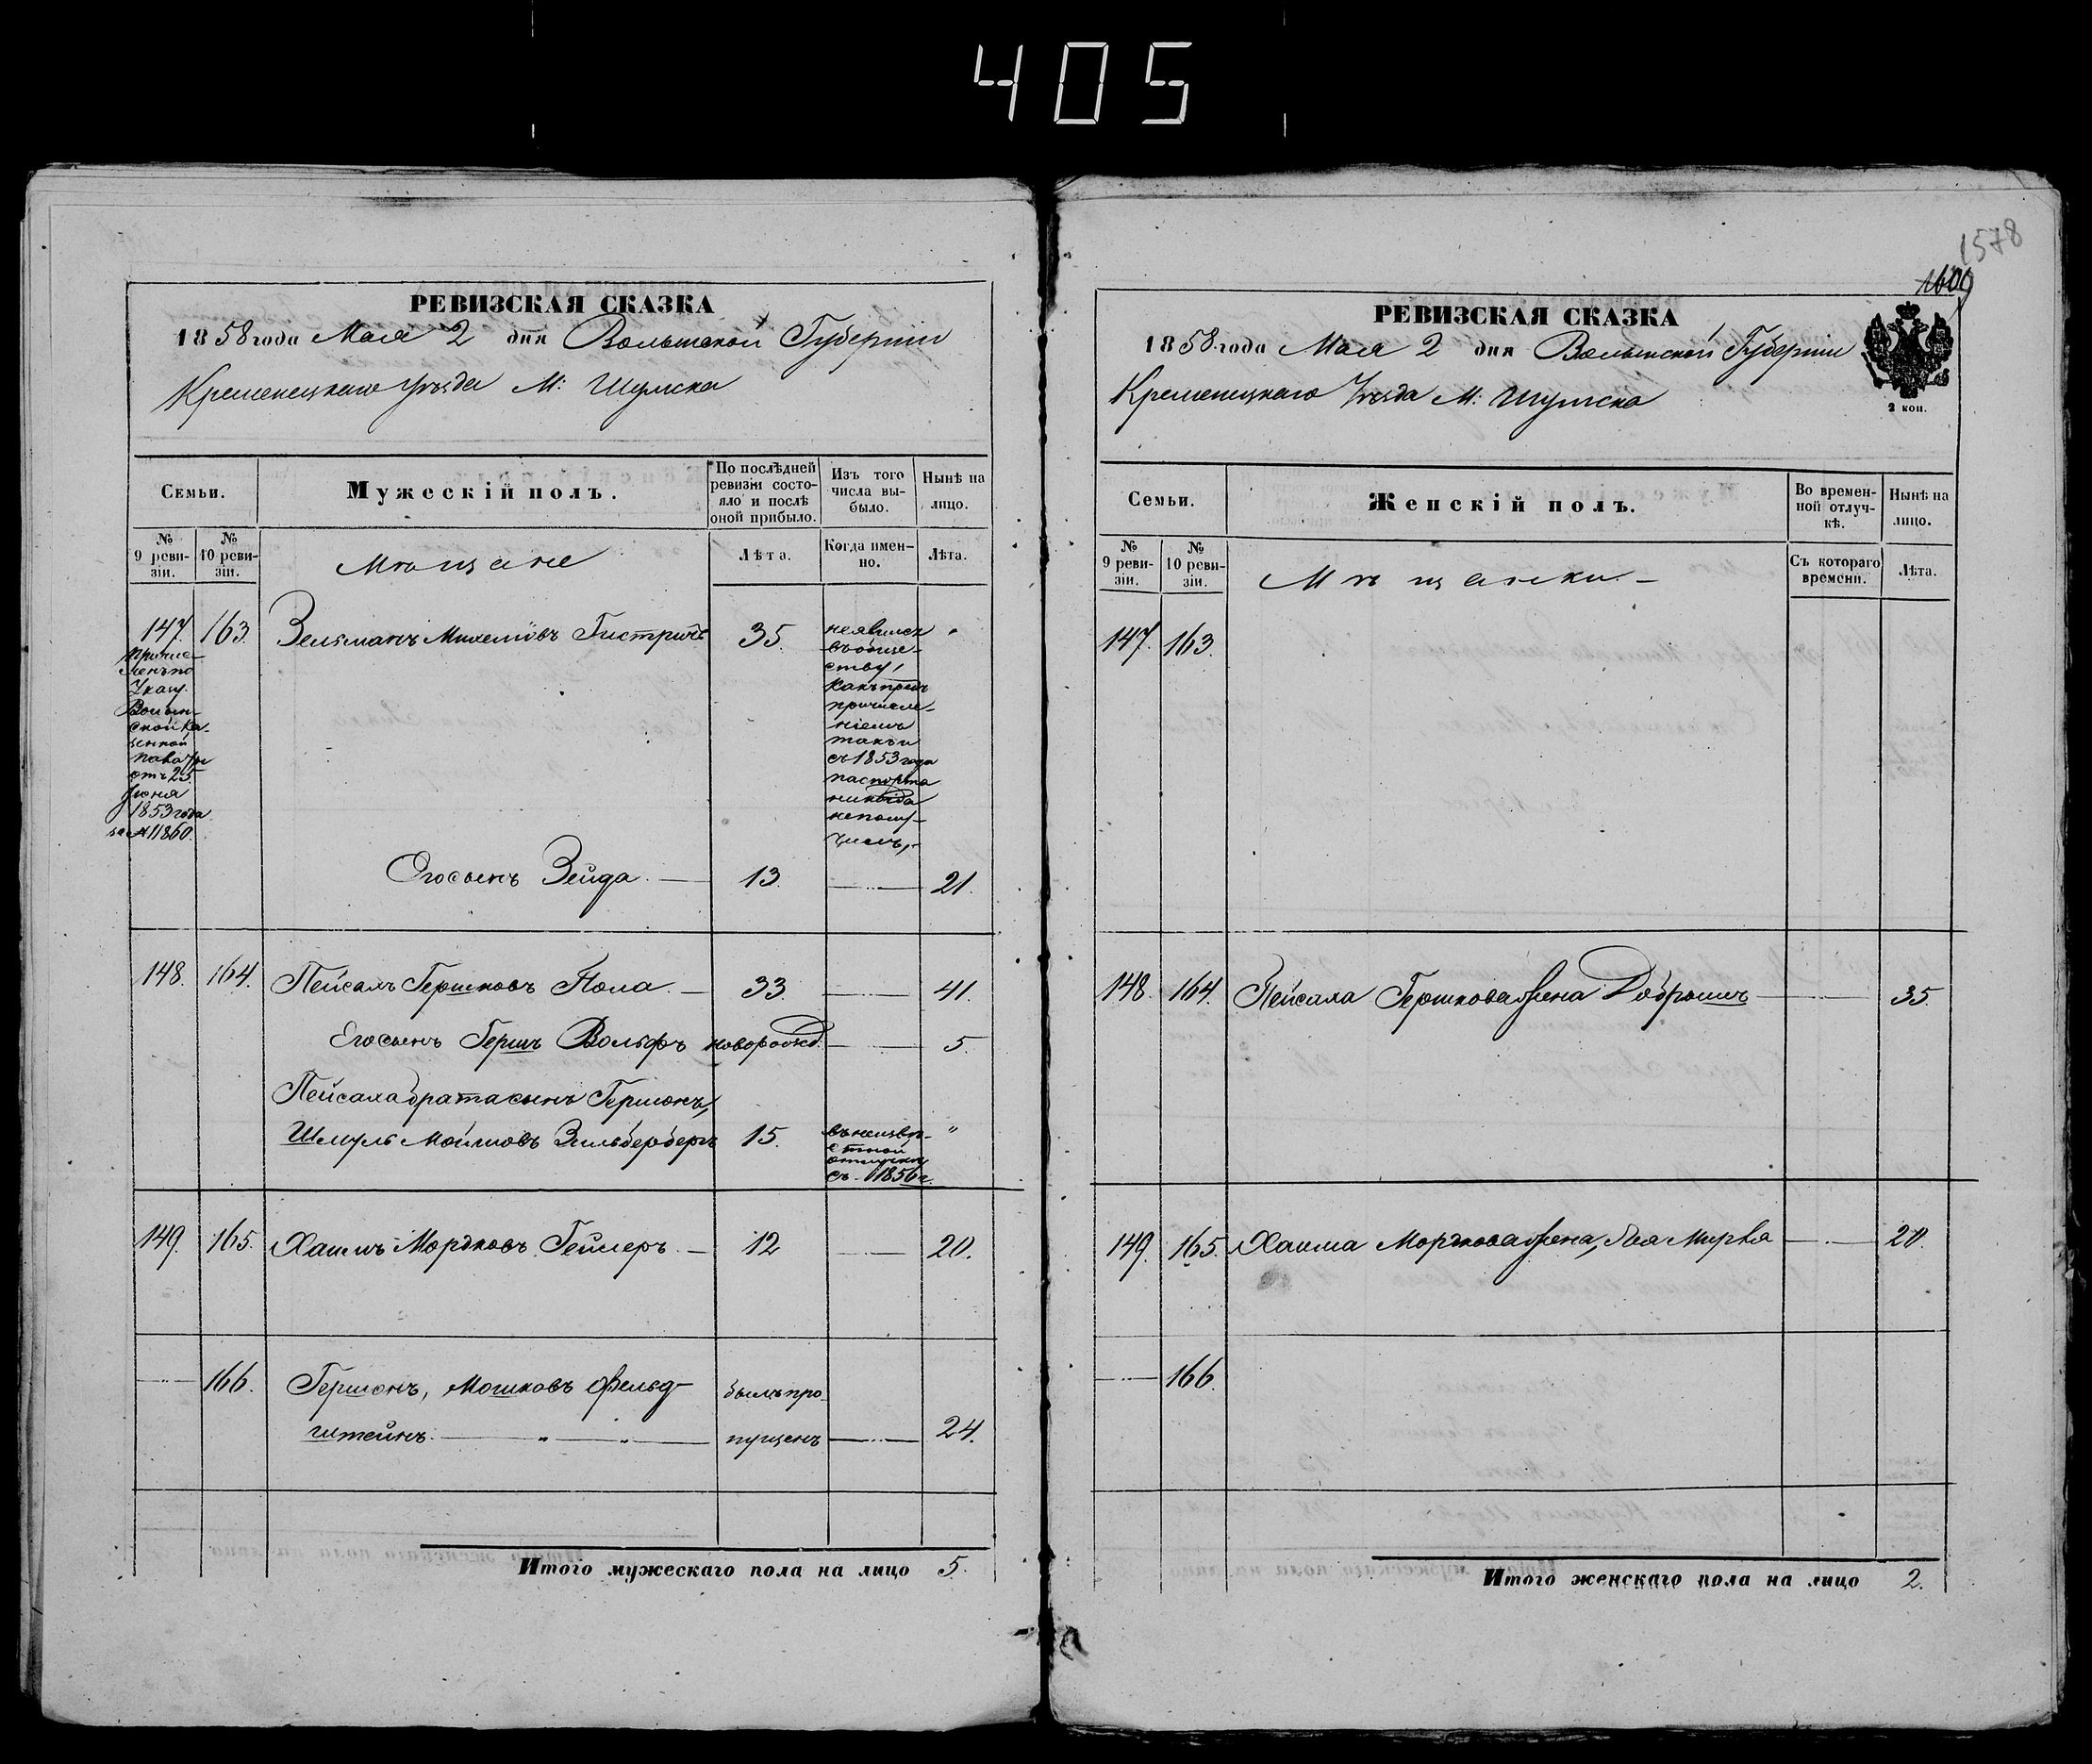 405
РЕВИЗСКАЯ СКАЗКА
1858 года Мая 2 дня Волынской Губернии
Кременецкаго уѣзда М: Шумска
Семьи.
Мужескій полъ.
По послѣдней ревизіи состояло и послѣ оной прибыло.
Изъ того числа выбыло.
Нынѣ на лицо.
№ 9 ревизіи.
№ 10 ревизіи.
Мѣщане
Лѣта.
Когда именно.
Лѣта.
147. 163. Зельманъ Михелiовъ Гистринъ 35. "
причисленъ по
Указу
Волынской Казенной
палаты
отъ 25
Іюня
1853 года
за № 11860.
неявился
въ обще-
ству,
какъ предъ
причисле-
ніемъ
такъ и
съ 1853 года
паспорта
никогда
неполу-
чилъ,
Его сынъ Зейда 13. 21.
148. 164. Пейсахъ Гершковъ Пола 33. 41.
Его сынъ Герш Вольфъ новорожд. 5.
Пейсаха брата сынъ Гершонъ,
Шмуль Мошковъ Зильбербергъ 15. "
въ неизвѣ-
стной
отлучкѣ
съ 1856 г.
149. 165. Хаимъ Мордковъ Гейлеръ 12 20.
166. Гершонъ, Мошковъ Фельд-
штейнъ былъ пропущенъ 24.
Итого мужескаго пола на лицо 5.
1578
1609
РЕВИЗСКАЯ СКАЗКА
1858 года Мая 2 дня Волынской Губернии
Кременецкаго Уѣзда М: Шумска
2 коп.
Семьи.
Женскій полъ.
Во временной отлучкѣ.
Нынѣ на лицо.
№ 9 ревизіи.
№ 10 ревизіи.
Мѣщанки
Съ котораго времени.
Лѣта.
147. 163.
148. 164. Пейсаха Гершкова жена Добрышъ 35.
149. 165. Хаима Мордкова жена, Лея Мирвя 20.
166.
Итого женскаго пола на лицо 2.